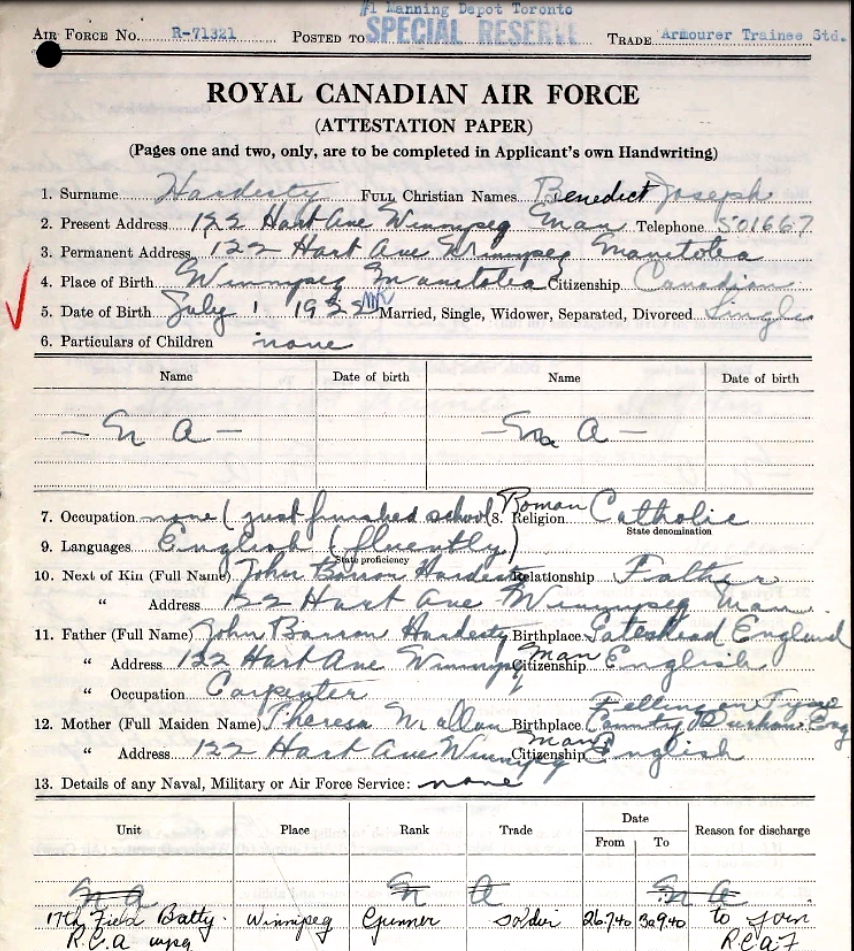 #1 Manning Depot Toronto
AIR FORCE No. R-71321 POSTED TO SPECIAL RESERVE TRADE Armourer Trainee Std.
ROYAL CANADIAN AIR FORCE
(ATTESTATION PAPER)
(Pages one and two, only, are to be completed in Applicant's own Handwriting)
1. Surname Hardesty FULL Christian Names Benedict Joseph
2. Present Address 122 Hart Ave Winnipeg Man Telephone 501667
3. Permanent Address 122 Hart Ave Winnipeg Manitoba
4. Place of Birth Winnipeg Manitoba Citizenship Canadian
5. Date of Birth July 1 1922 Married, Single, Widower, Separated, Divorced Single
6. Particulars of Children none
Name Date of birth Name Date of birth
— N A — — N A —
7. Occupation none (just finished school) 8. Religion Roman Catholic
State denomination
9. Languages English (fluently)
State proficiency
10. Next of Kin (Full Name) John Barron Hardesty Relationship Father
" Address 122 Hart Ave Winnipeg Man
11. Father (Full Name) John Barron Hardesty Birthplace Gateshead England
" Address 122 Hart Ave Winnipeg Man Citizenship English
" Occupation Carpenter
12. Mother (Full Maiden Name) Theresa Birthplace Felling on Tyne County Durham Eng
" Address 122 Hart Ave Winnipeg Man Citizenship English
13. Details of any Naval, Military or Air Force Service: none
Unit Place Rank Trade Date Reason for discharge
From To
N A N A N A
17th Field Batty. Winnipeg Gunner Soldier 26.7.40 3.9.40 to join
R.C.A wpg R.C.A.F